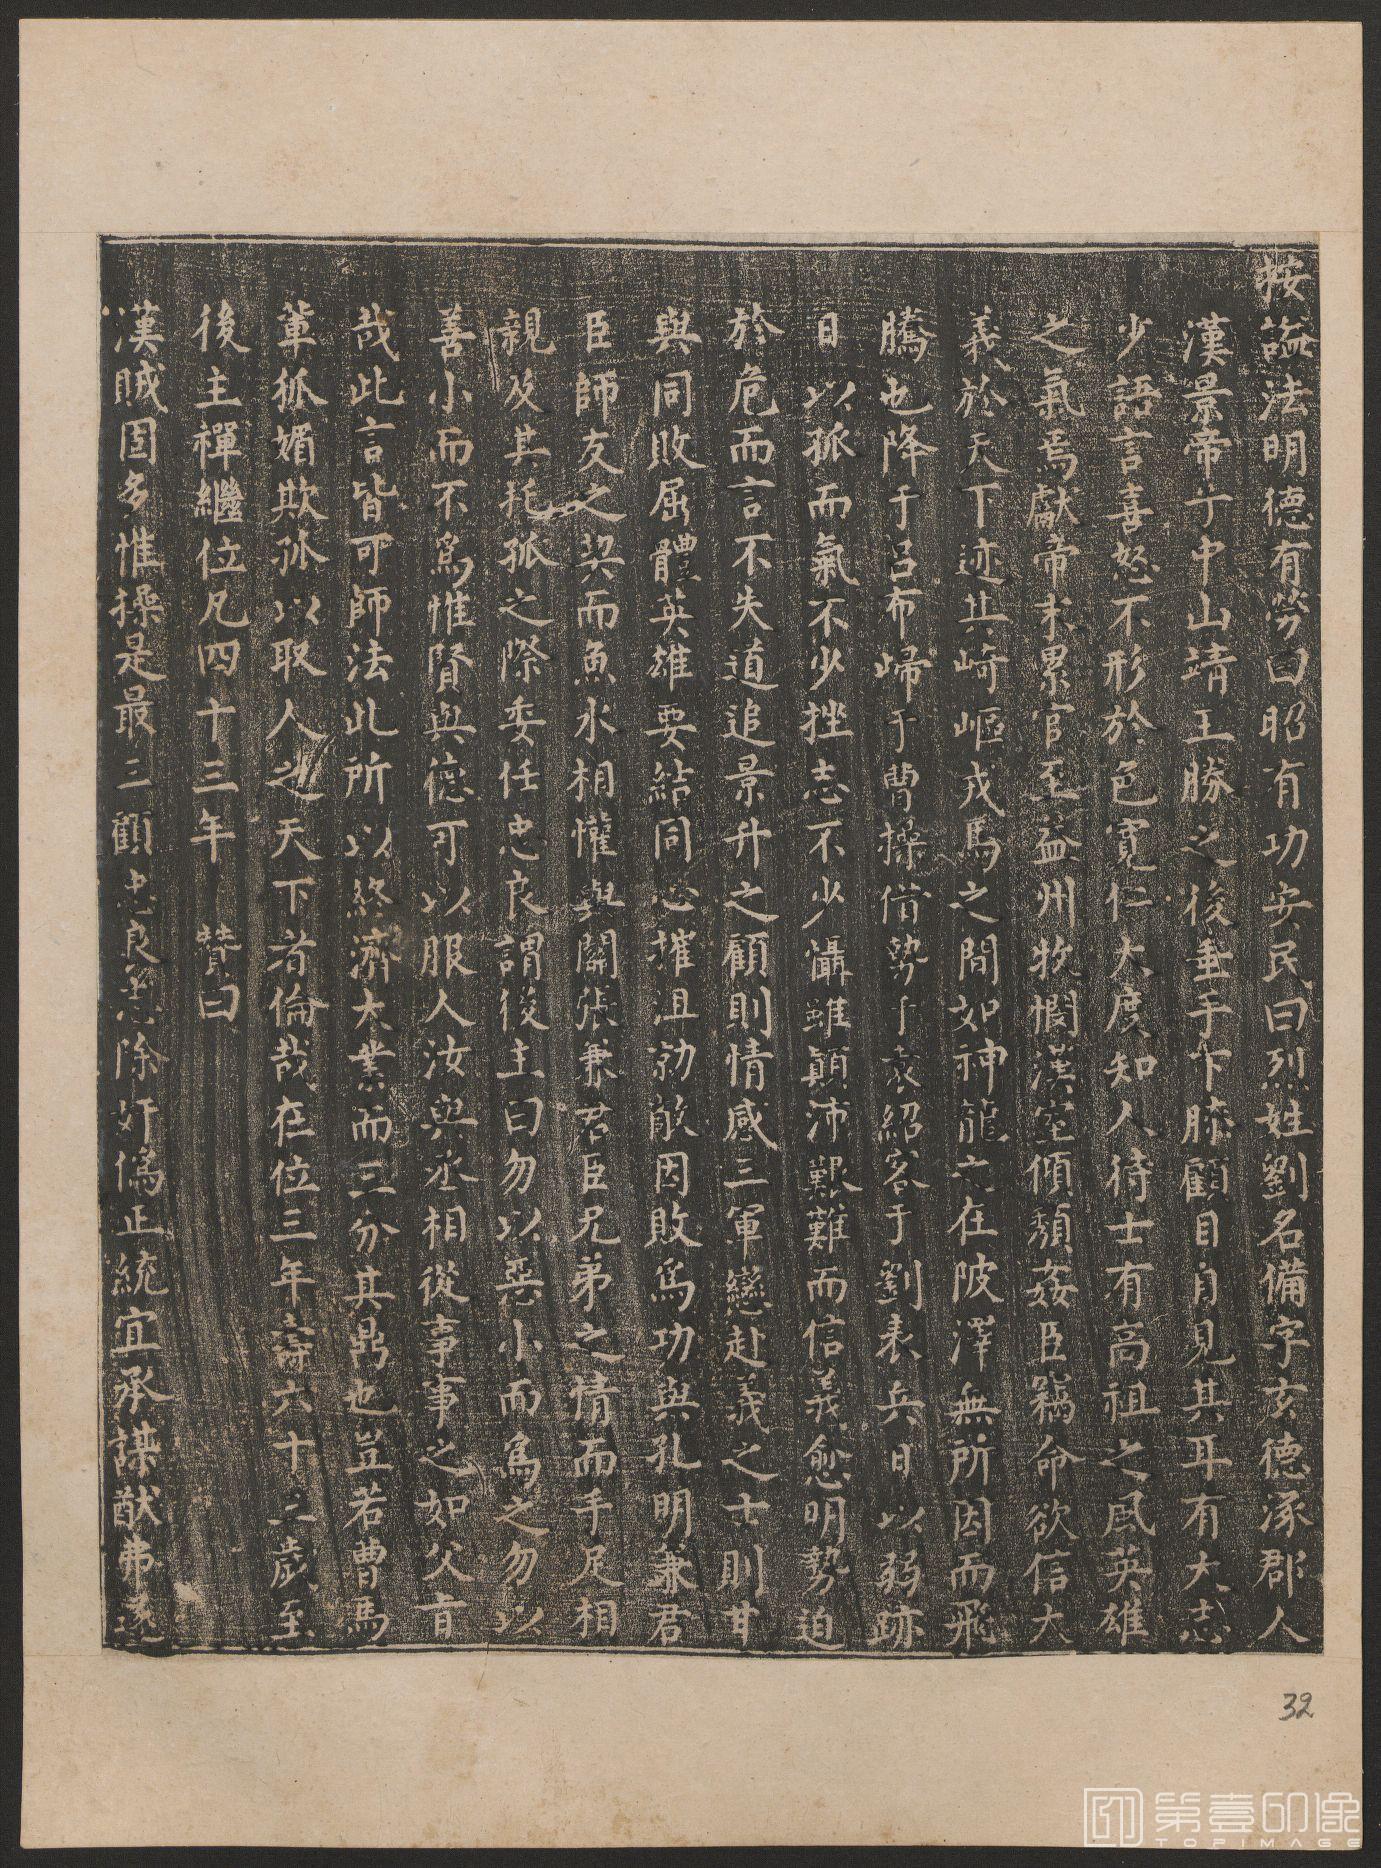 按諡法明德有勞曰昭有功安民曰烈姓劉名備字玄德涿郡人
漢景帝子中山靖王勝之後垂手下膝顧目自見其耳有大志
少語言喜怒不形於色寬仁大度知人待士有高祖之風英雄
之氣焉獻帝末累官至益州牧憫漢室傾頹姦臣竊命欲信大
義於天下迹其崎嶇戎馬之間如神龍之在陂澤無所因而飛
騰也降于呂布歸于曹操借勢于袁紹客于劉表兵日以弱跡
日以孤而氣不少挫志不少懾雖顛沛艱難而信義愈明勢迫
於危而言不失道追景升之顧則情感三軍戀赴義之士則甘
與同敗屈體英雄要結同心摧沮勍敵因敗爲功與孔明兼君
臣師友之契而魚水相懽與關張兼君臣兄弟之情而手足相
親及其托孤之際委任忠良謂後主曰勿以惡小而爲之勿以
善小而不爲惟賢與德可以服人汝與丞相從事事之如父旨
哉此言皆可師法此所以終濟大業而三分其鼎也豈若曹馬
輩狐媚欺孤以取人之天下者倫哉在位三年壽六十三歲至
後主禪繼位凡四十三年 贊曰
漢賊固多惟操是最三顧忠良志除奸僞正統宜承謀猷弗遂
32
第壹印像
TOPIMAGE